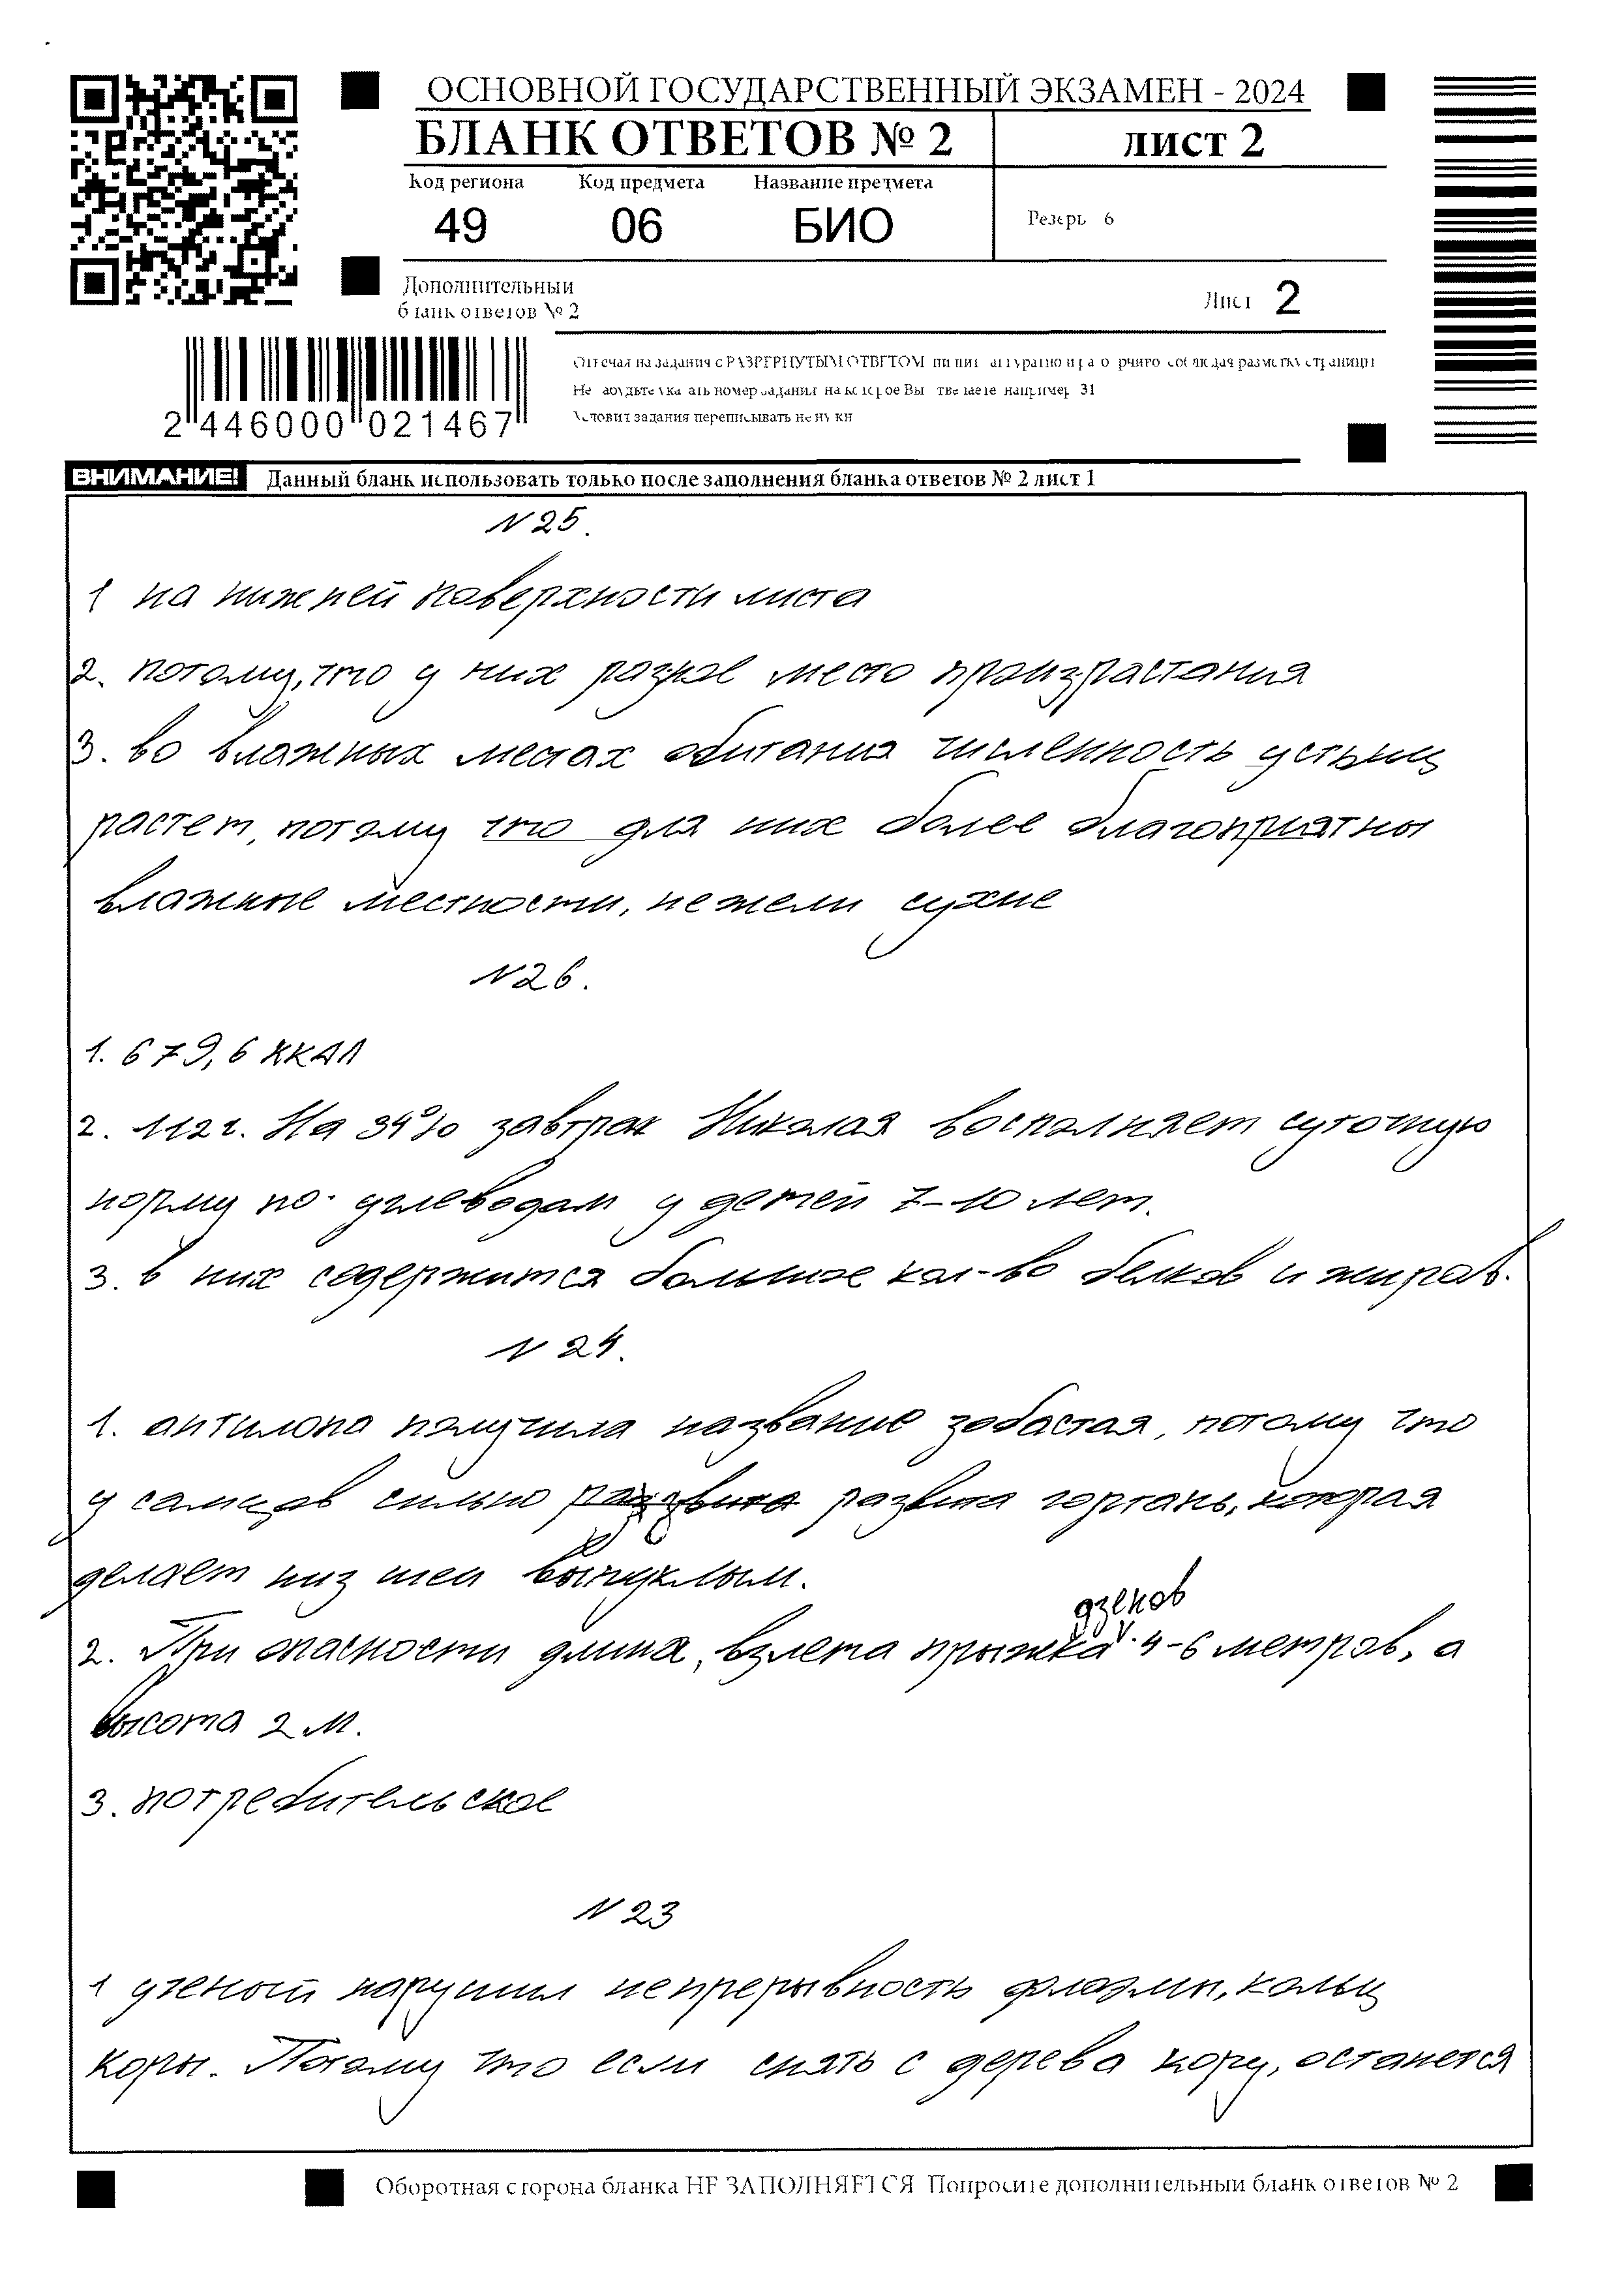 ОСНОВНОЙ ГОСУДАРСТВЕННЫЙ ЭКЗАМЕН - 2024
БЛАНК ОТВЕТОВ № 2
ЛИСТ 2
Код региона Код предмета Название предмета
49 06 БИО
Резерв 6
Дополнительный
бланк ответов № 2
Лист 2
2 446000 021467
Отвечая на задания с РАЗВЕРНУТЫМ ОТВЕТОМ, пишите аккуратно и разборчиво, соблюдая разметку страницы
Не забудьте указать номер задания, на которое Вы отвечаете, например, 31
Условия задания переписывать не нужно
ВНИМАНИЕ! Данный бланк использовать только после заполнения бланка ответов № 2 лист 1
N 25.
1 на нижней поверхности листа
2. потому, что у них разное место произрастания
3. во влажных местах обитания численность устьиц
растет, потому что для них более благоприятны
влажные местности, нежели сухие
N 26.
1. 679,6 ККАЛ
2. 112 г. На 34% завтрак Николая восполняет суточную
норму по углеводам у детей 7-10 лет.
3. в них содержится большое кол-во белков и жиров.
N 24.
1. антилопа получила название зобастая, потому что
у самцов сильно развита гортань, которая
делает низ шеи выпуклым.
2. При опасности длина, взлета прыжка дзенов 4-6 метров, а
высота 2 м.
3. потребительское
N 23
1 ученый нарушил непрерывность флоэмы, кольц
коры. Потому что если снять с дерева кору, останется
Оборотная сторона бланка НЕ ЗАПОЛНЯЕТСЯ Попросите дополнительный бланк ответов № 2